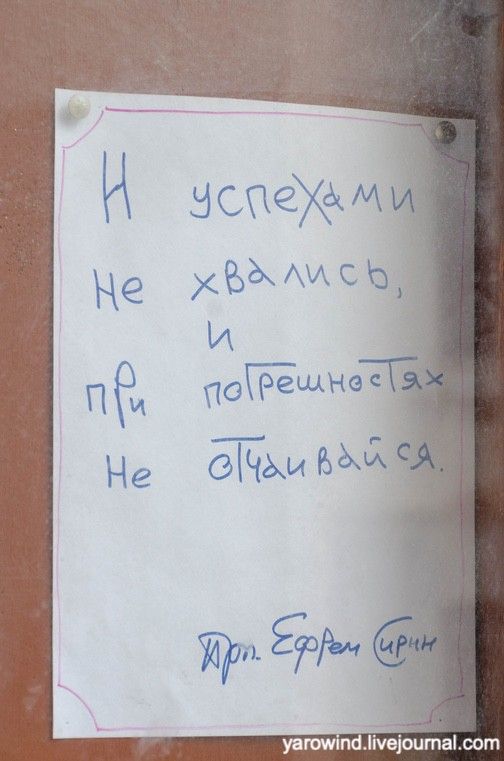 И успехами
не хвались,
и
при погрешностях
не отчаивайся.
Прп. Ефрем Сирин
yarowind.livejournal.com